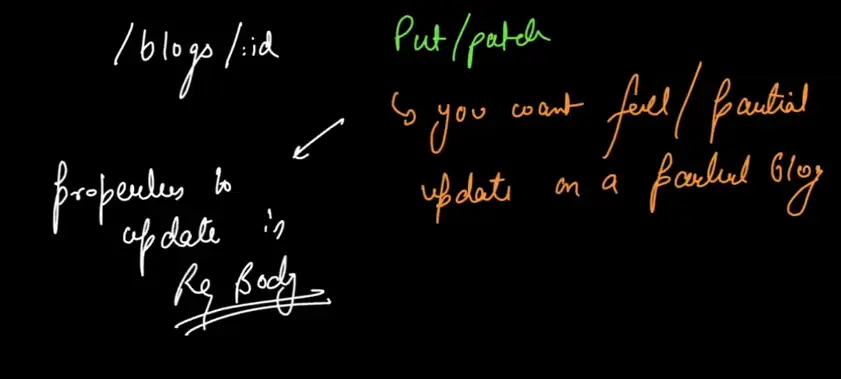 /blogs/:id
Put/patch
↳ you want full/partial
update on a partial blog
properties to
update is
Req Body